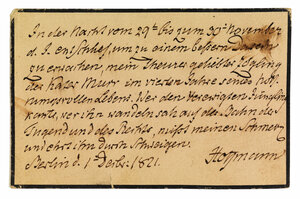 In der Nacht vom 29t bis zum 30t November
d. J. entschlief, um zu einem bessern Dasein
zu erwachen, mein theurer geliebter Zögling
der Kater Murr im vierten Jahre seines hoff-
nungsvollen Lebens. Wer den verewigten Jüngling
kannte, wer ihn wandeln sah auf der Bahn der
Tugend und des Rechts, mißt meinen Schmerz
und ehrt ihn durch Schweigen.
Berlin d. 1 Decbr: 1821. Hoffmann